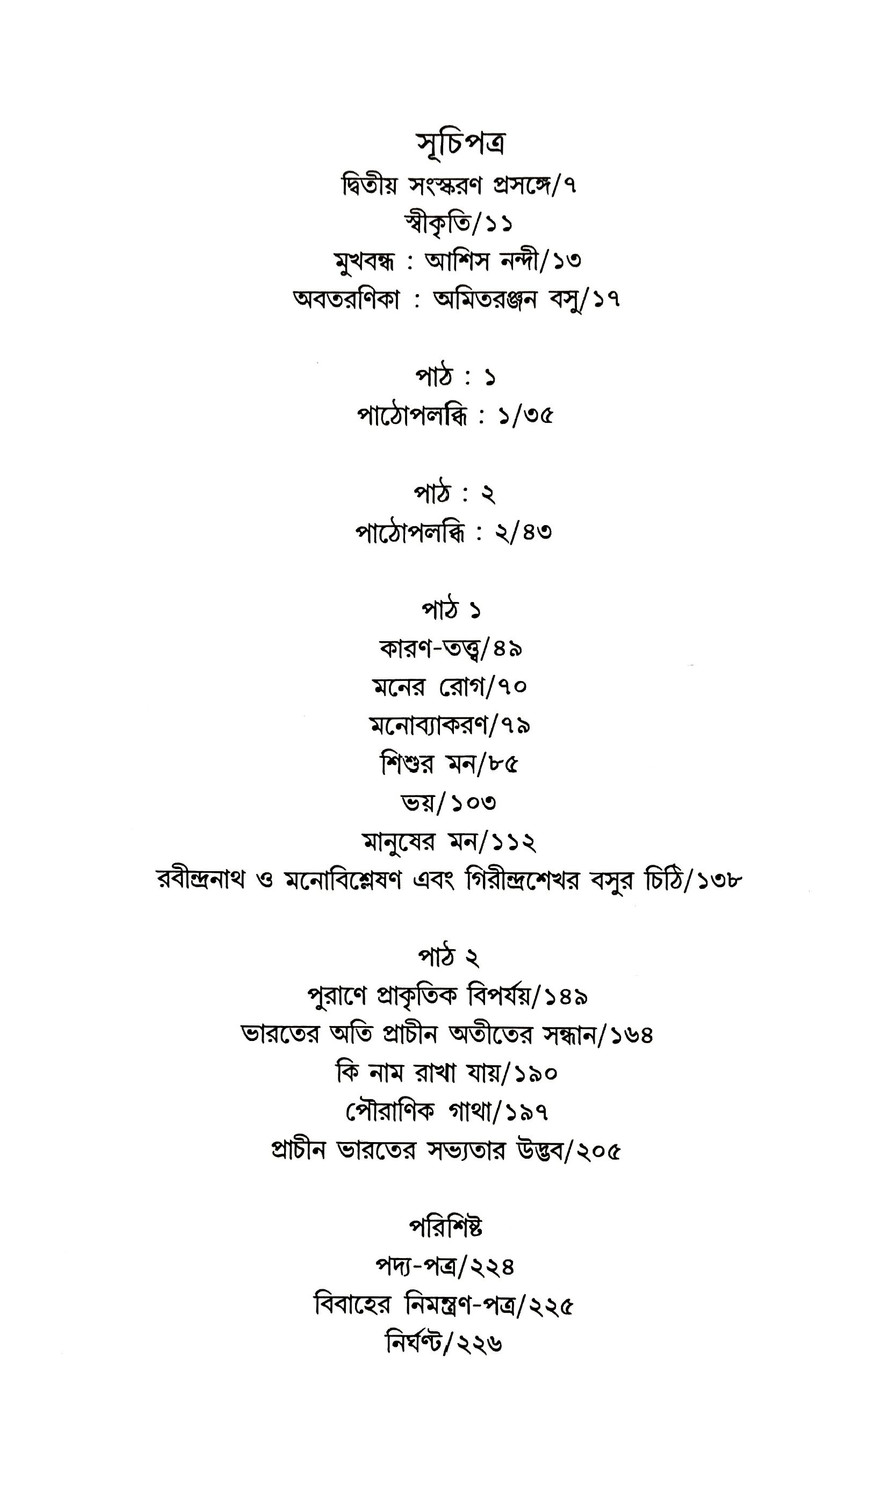 সূচিপত্র
দ্বিতীয় সংস্করণ প্রসঙ্গে/৭
স্বীকৃতি/১১
মুখবন্ধ : আশিস নন্দী/১৩
অবতরণিকা : অমিতরঞ্জন বসু/১৭
পাঠ : ১
পাঠোপলব্ধি : ১/৩৫
পাঠ : ২
পাঠোপলব্ধি : ২/৪৩
পাঠ ১
কারণ-তত্ত্ব/৪৯
মনের রোগ/৭০
মনোব্যাকরণ/৭৯
শিশুর মন/৮৫
ভয়/১০৩
মানুষের মন/১১২
রবীন্দ্রনাথ ও মনোবিশ্লেষণ এবং গিরীন্দ্রশেখর বসুর চিঠি/১৩৮
পাঠ ২
পুরাণে প্রাকৃতিক বিপর্যয়/১৪৯
ভারতের অতি প্রাচীন অতীতের সন্ধান/১৬৪
কি নাম রাখা যায়/১৯০
পৌরাণিক গাথা/১৯৭
প্রাচীন ভারতের সভ্যতার উদ্ভব/২০৫
পরিশিষ্ট
পদ্য-পত্র/২২৪
বিবাহের নিমন্ত্রণ-পত্র/২২৫
নির্ঘণ্ট/২২৬